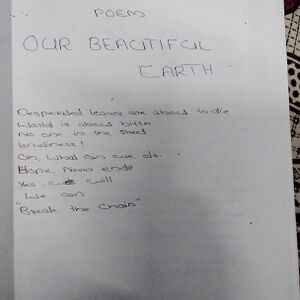 POEM
OUR BEAUTIFUL
EARTH
Desperated leaves are about to die
World is about bitter
No one in the shed
loneliness!
Oh, What can we do.
Hope, Never ends
Yes, we will
We can
"Break the Chain"